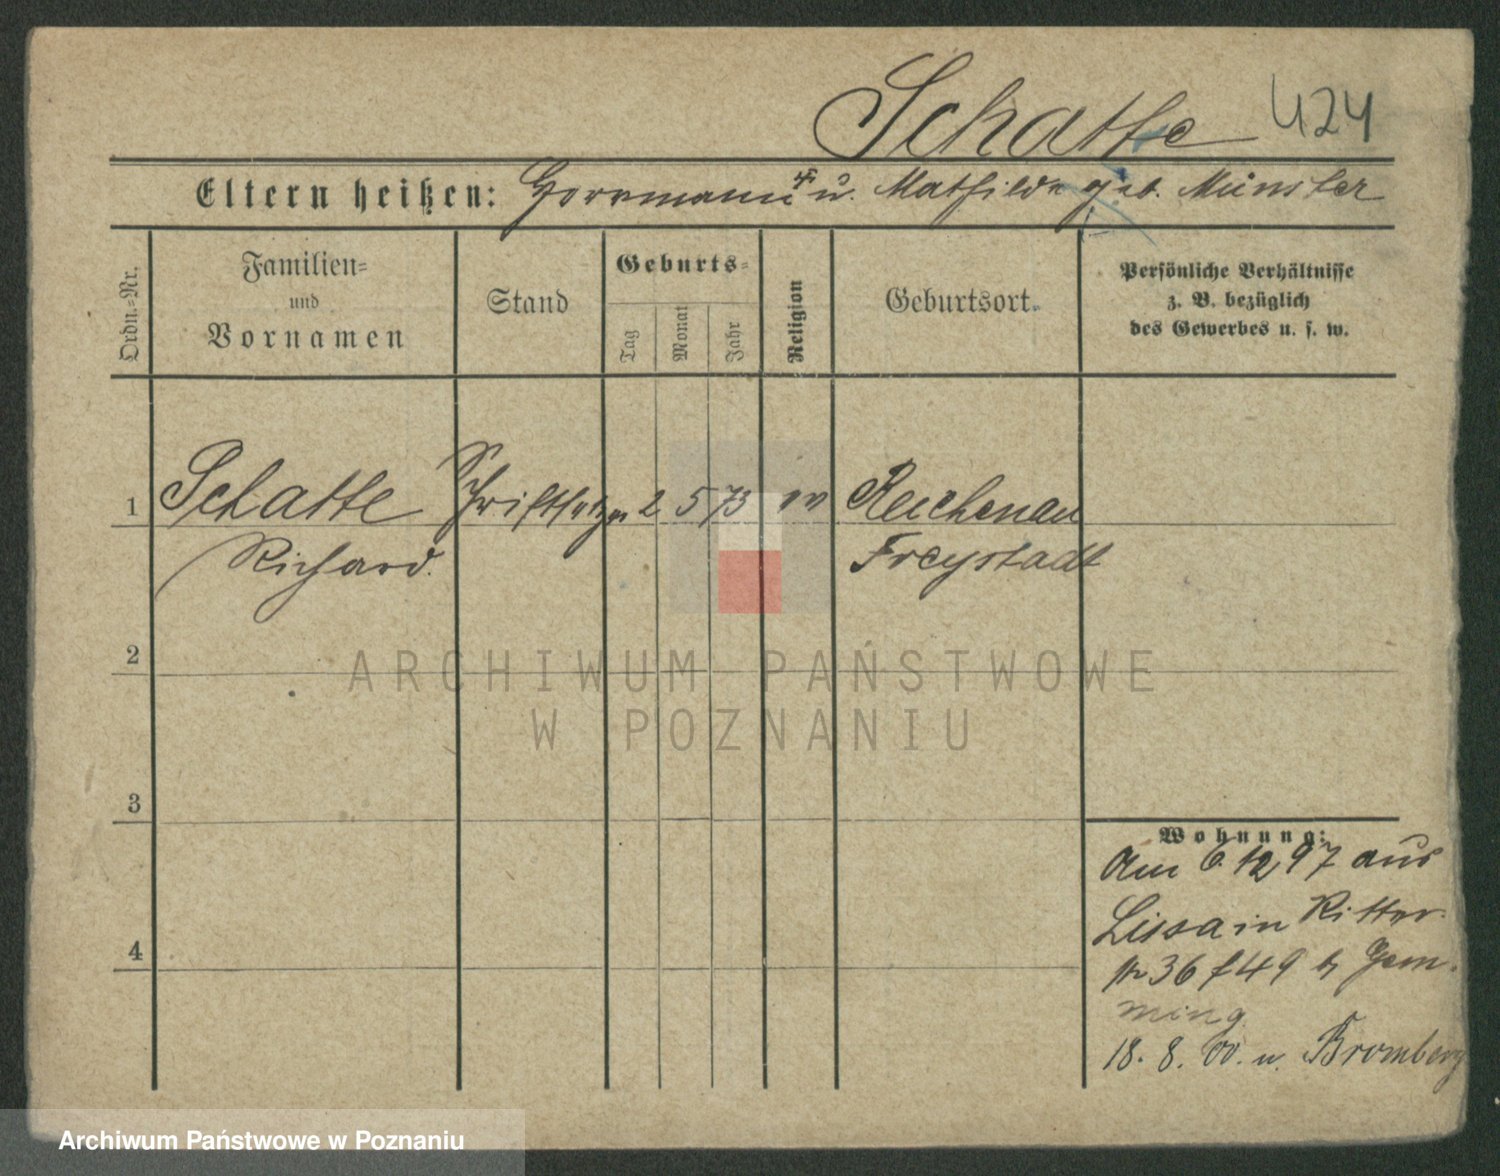 Schatte 424
Eltern heißen: Herrmann u. Mathilde geb. Münster
Ordn.=Nr.
Familien=
und
Vornamen
Stand
Geburts=
Tag
Monat
Jahr
Religion
Geburtsort.
Persönliche Verhältnisse
z. B. bezüglich
des Gewerbes u. s. w.
1 Schatte Schriftsetzer 2 5 73 ev Reichenau
Richard. Freystadt
2
3
4
Wohnung:
Am 6. 12 97 aus
Lissa in Ritter
str 36 f 49 b Jem-
ming
18. 8. 00. n. Bromberg
ARCHIWUM PAŃSTWOWE
W POZNANIU
Archiwum Państwowe w Poznaniu